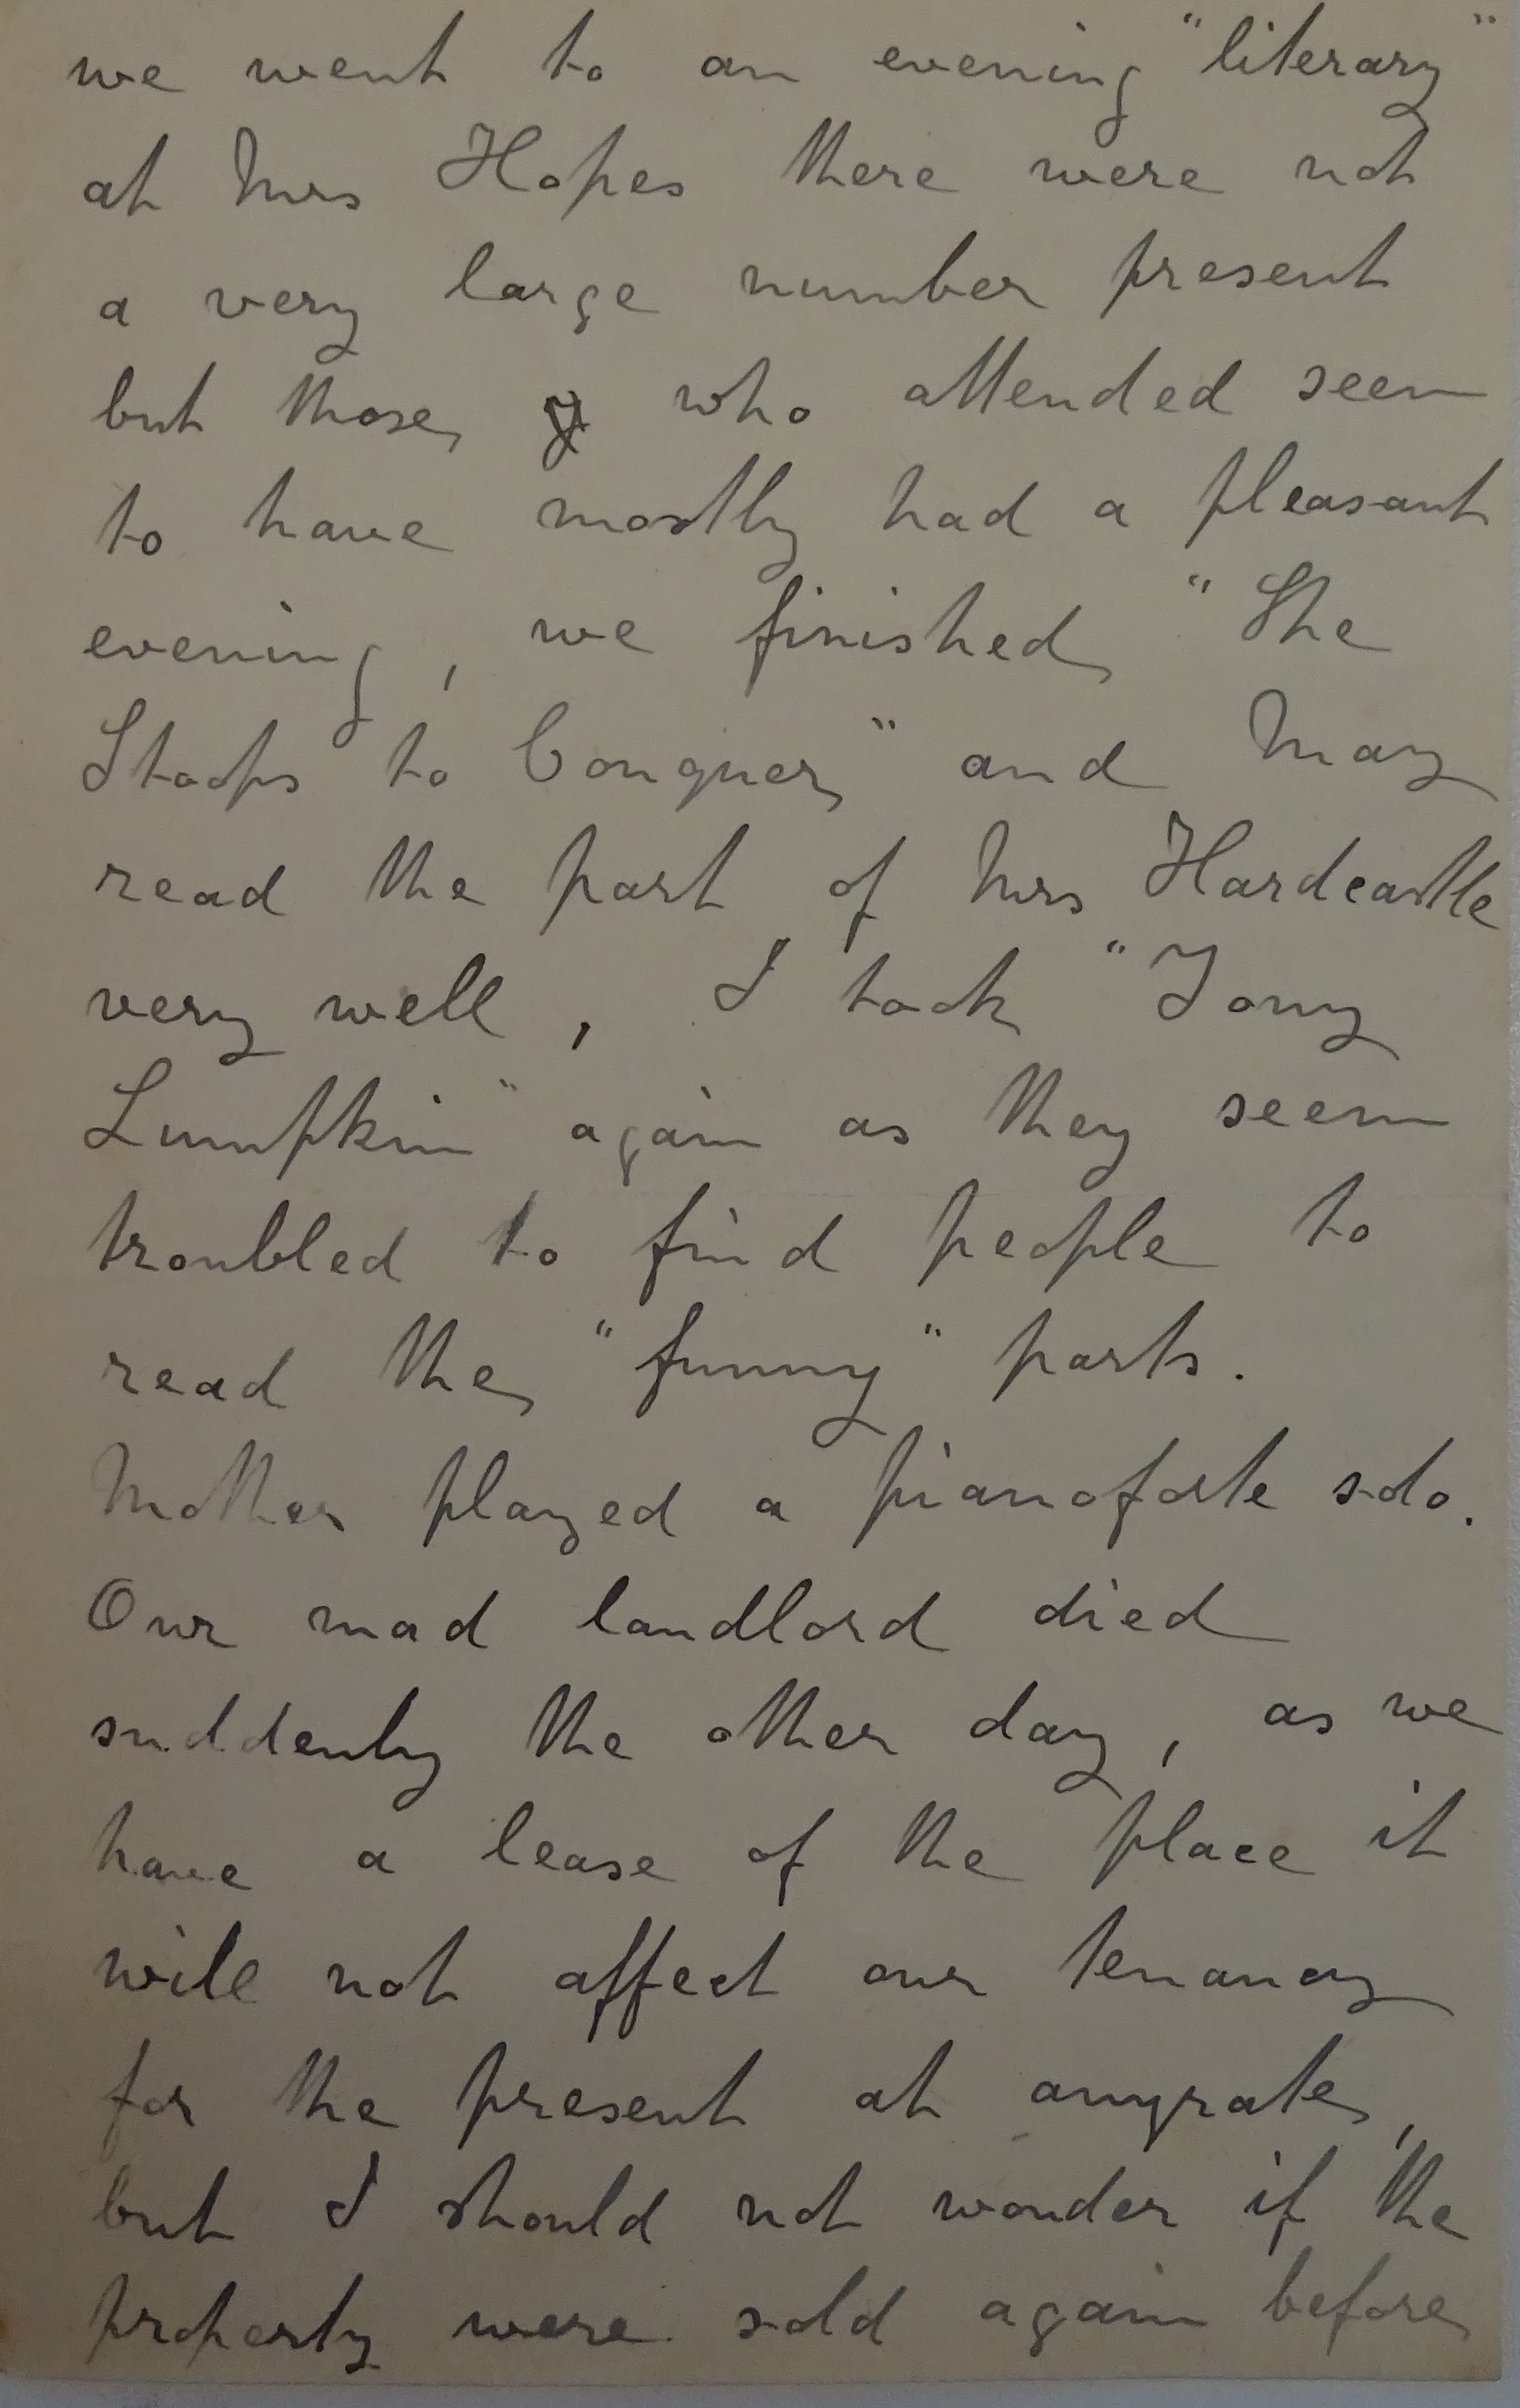 we went to an evening "literary"
at Mrs Hopes there were not
a very large number present
but those who attended seem
to have mostly had a pleasant
evening, we finished "She
Stoops to Conquer" and May
read the part of Mrs Hardcastle
very well, I took "Tony
Lumpkin" again as they seem
troubled to find people to
read the "funny" parts.
Mother played a pianoforte solo.
Our mad landlord died
suddenly the other day, as we
have a lease of the place it
will not affect our tenancy
for the present at anyrate,
but I should not wonder if the
property were sold again before